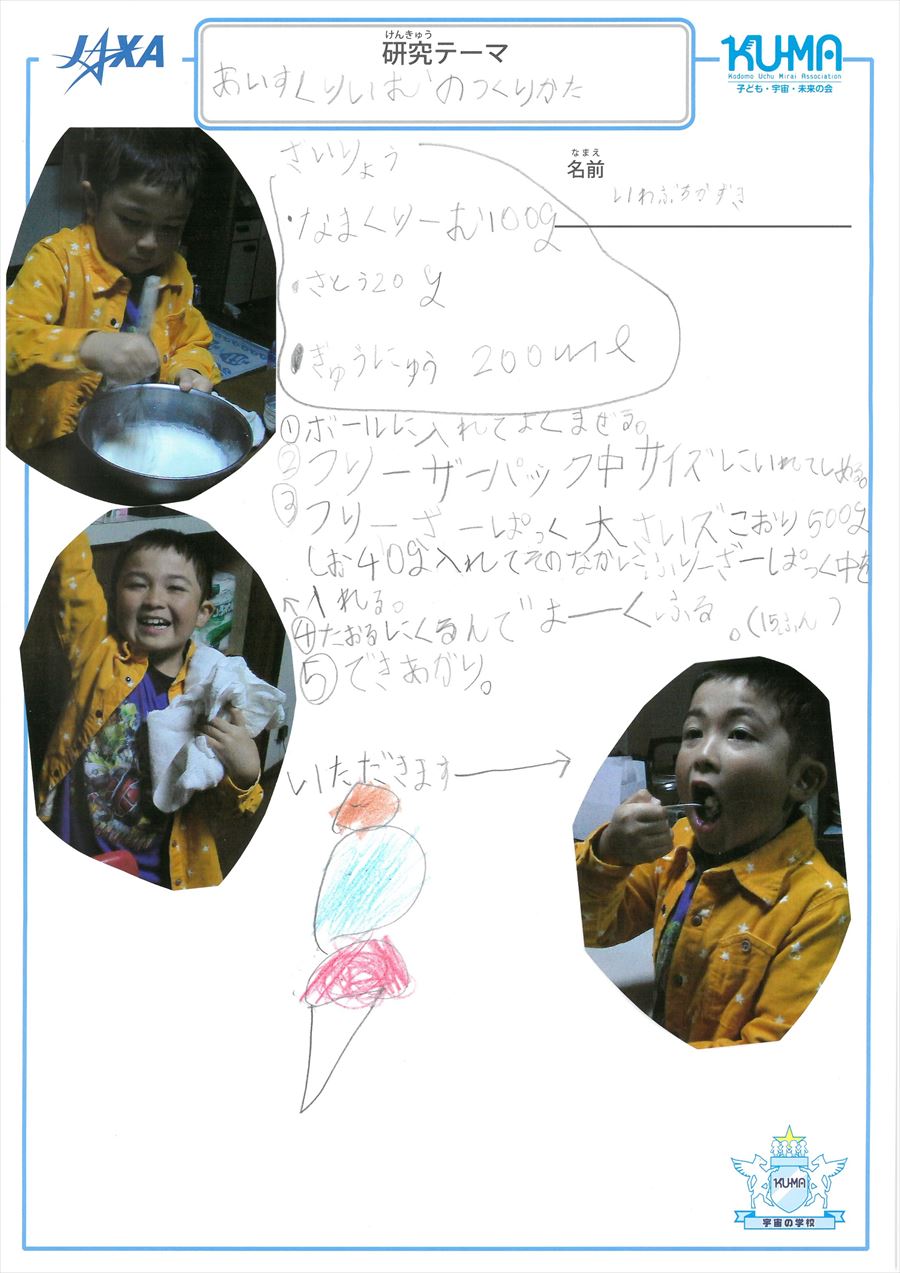 JAXA
けんきゅう
研究テーマ
KU-MA
Kodomo Uchu Mirai Association
子ども・宇宙・未来の会
あいすくりいむのつくりかた
なまえ
名前
いわぶちかずき
ざいりょう
・なまくりーむ100g
・さとう20g
・ぎゅうにゅう 200ml
①ボールに入れてよくまぜる。
②フリーザーパック中サイズにいれてしめる。
③フリーざーぱっく大さいズこおり500g
しお40g入れてそのなかにふりーざーぱっく中を
入れる。
④たおるにくるんでよーくふる。(15ふん)
⑤できあがり。
いただきます→
KU-MA
宇宙の学校